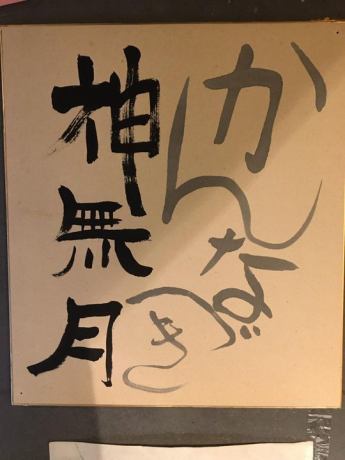 かんなづき
神無月